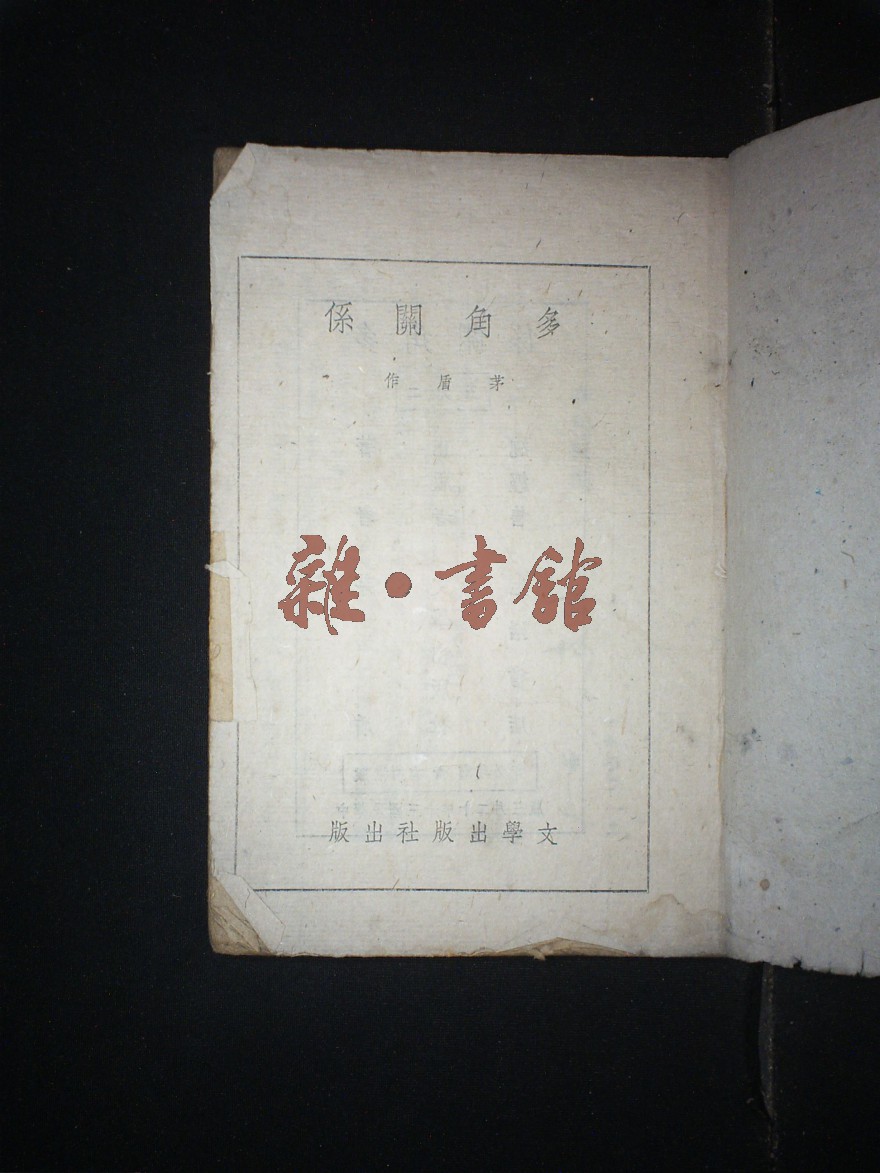 多角關係
茅盾作
雜•書館
文學出版社出版